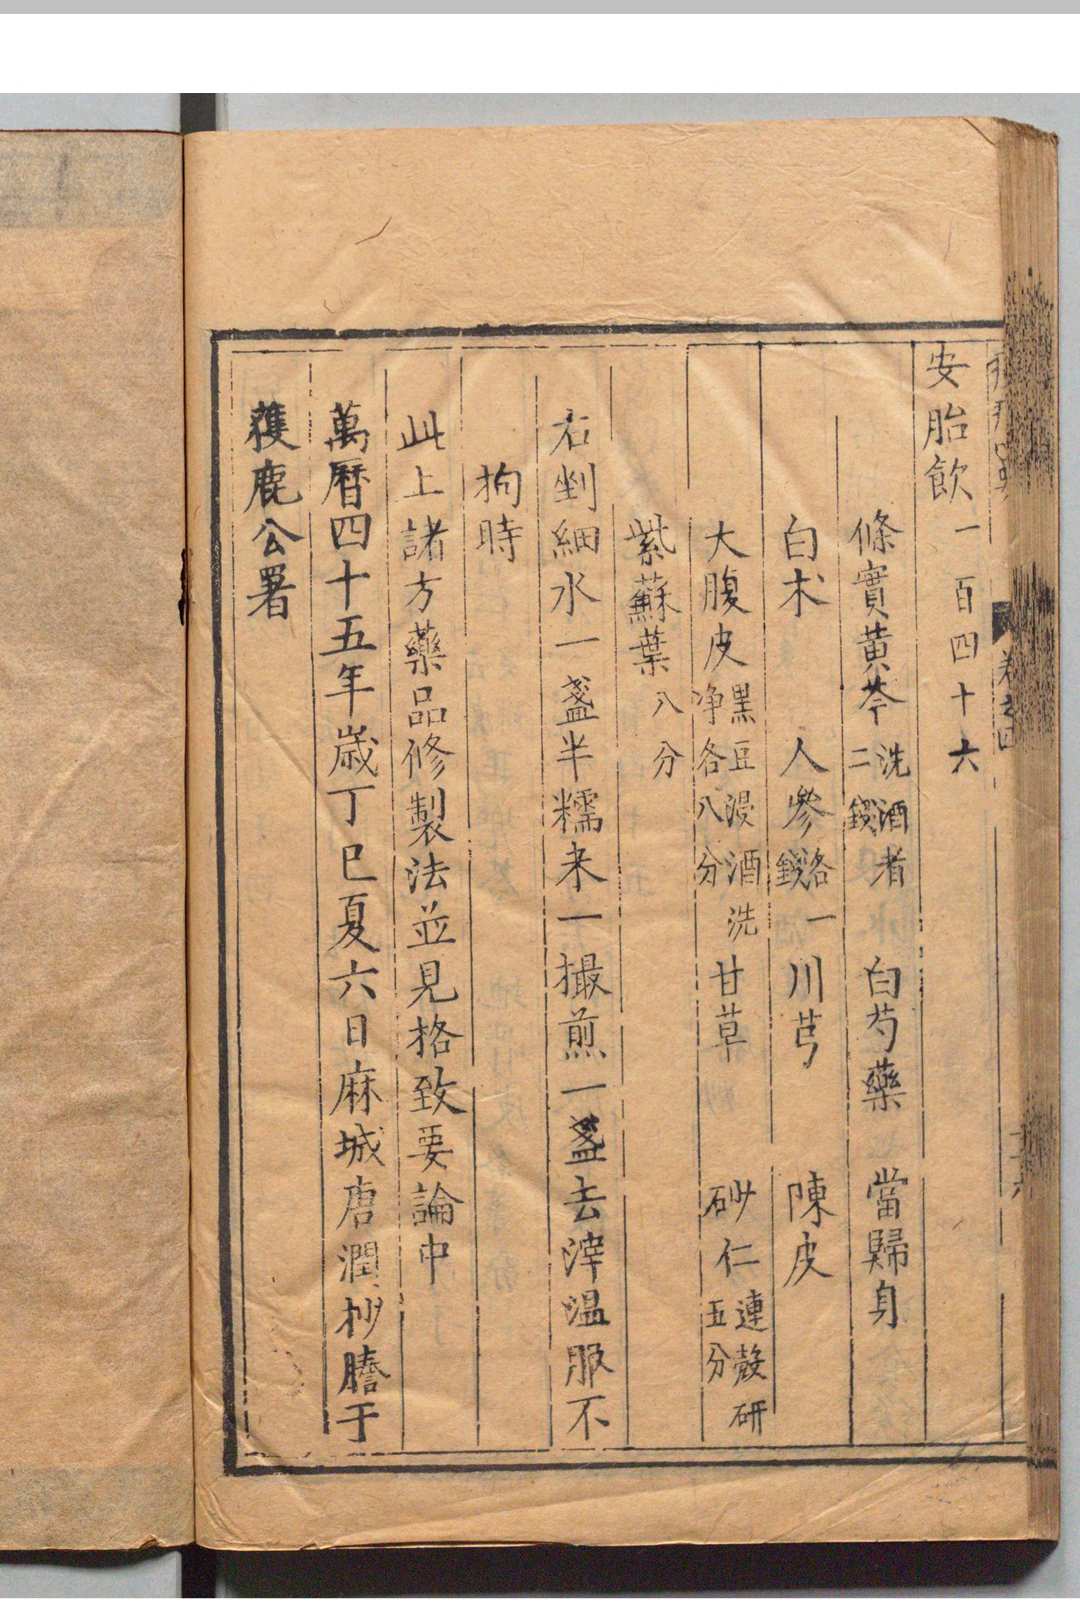 安胎飲一百四十六
條實黄芩洗酒者二錢 白芍藥 當歸身
白术 人參各一錢 川芎 陳皮
大腹皮黑豆浸酒洗净各八分 甘草 砂仁連殼研五分
紫蘇葉八分
右剉細水一盞半糯米一撮煎一盞去滓温服不
拘時
此上諸方藥品修製法並見格致要論中
萬曆四十五年歲丁巳夏六日麻城唐潤抄謄于
獲鹿公署